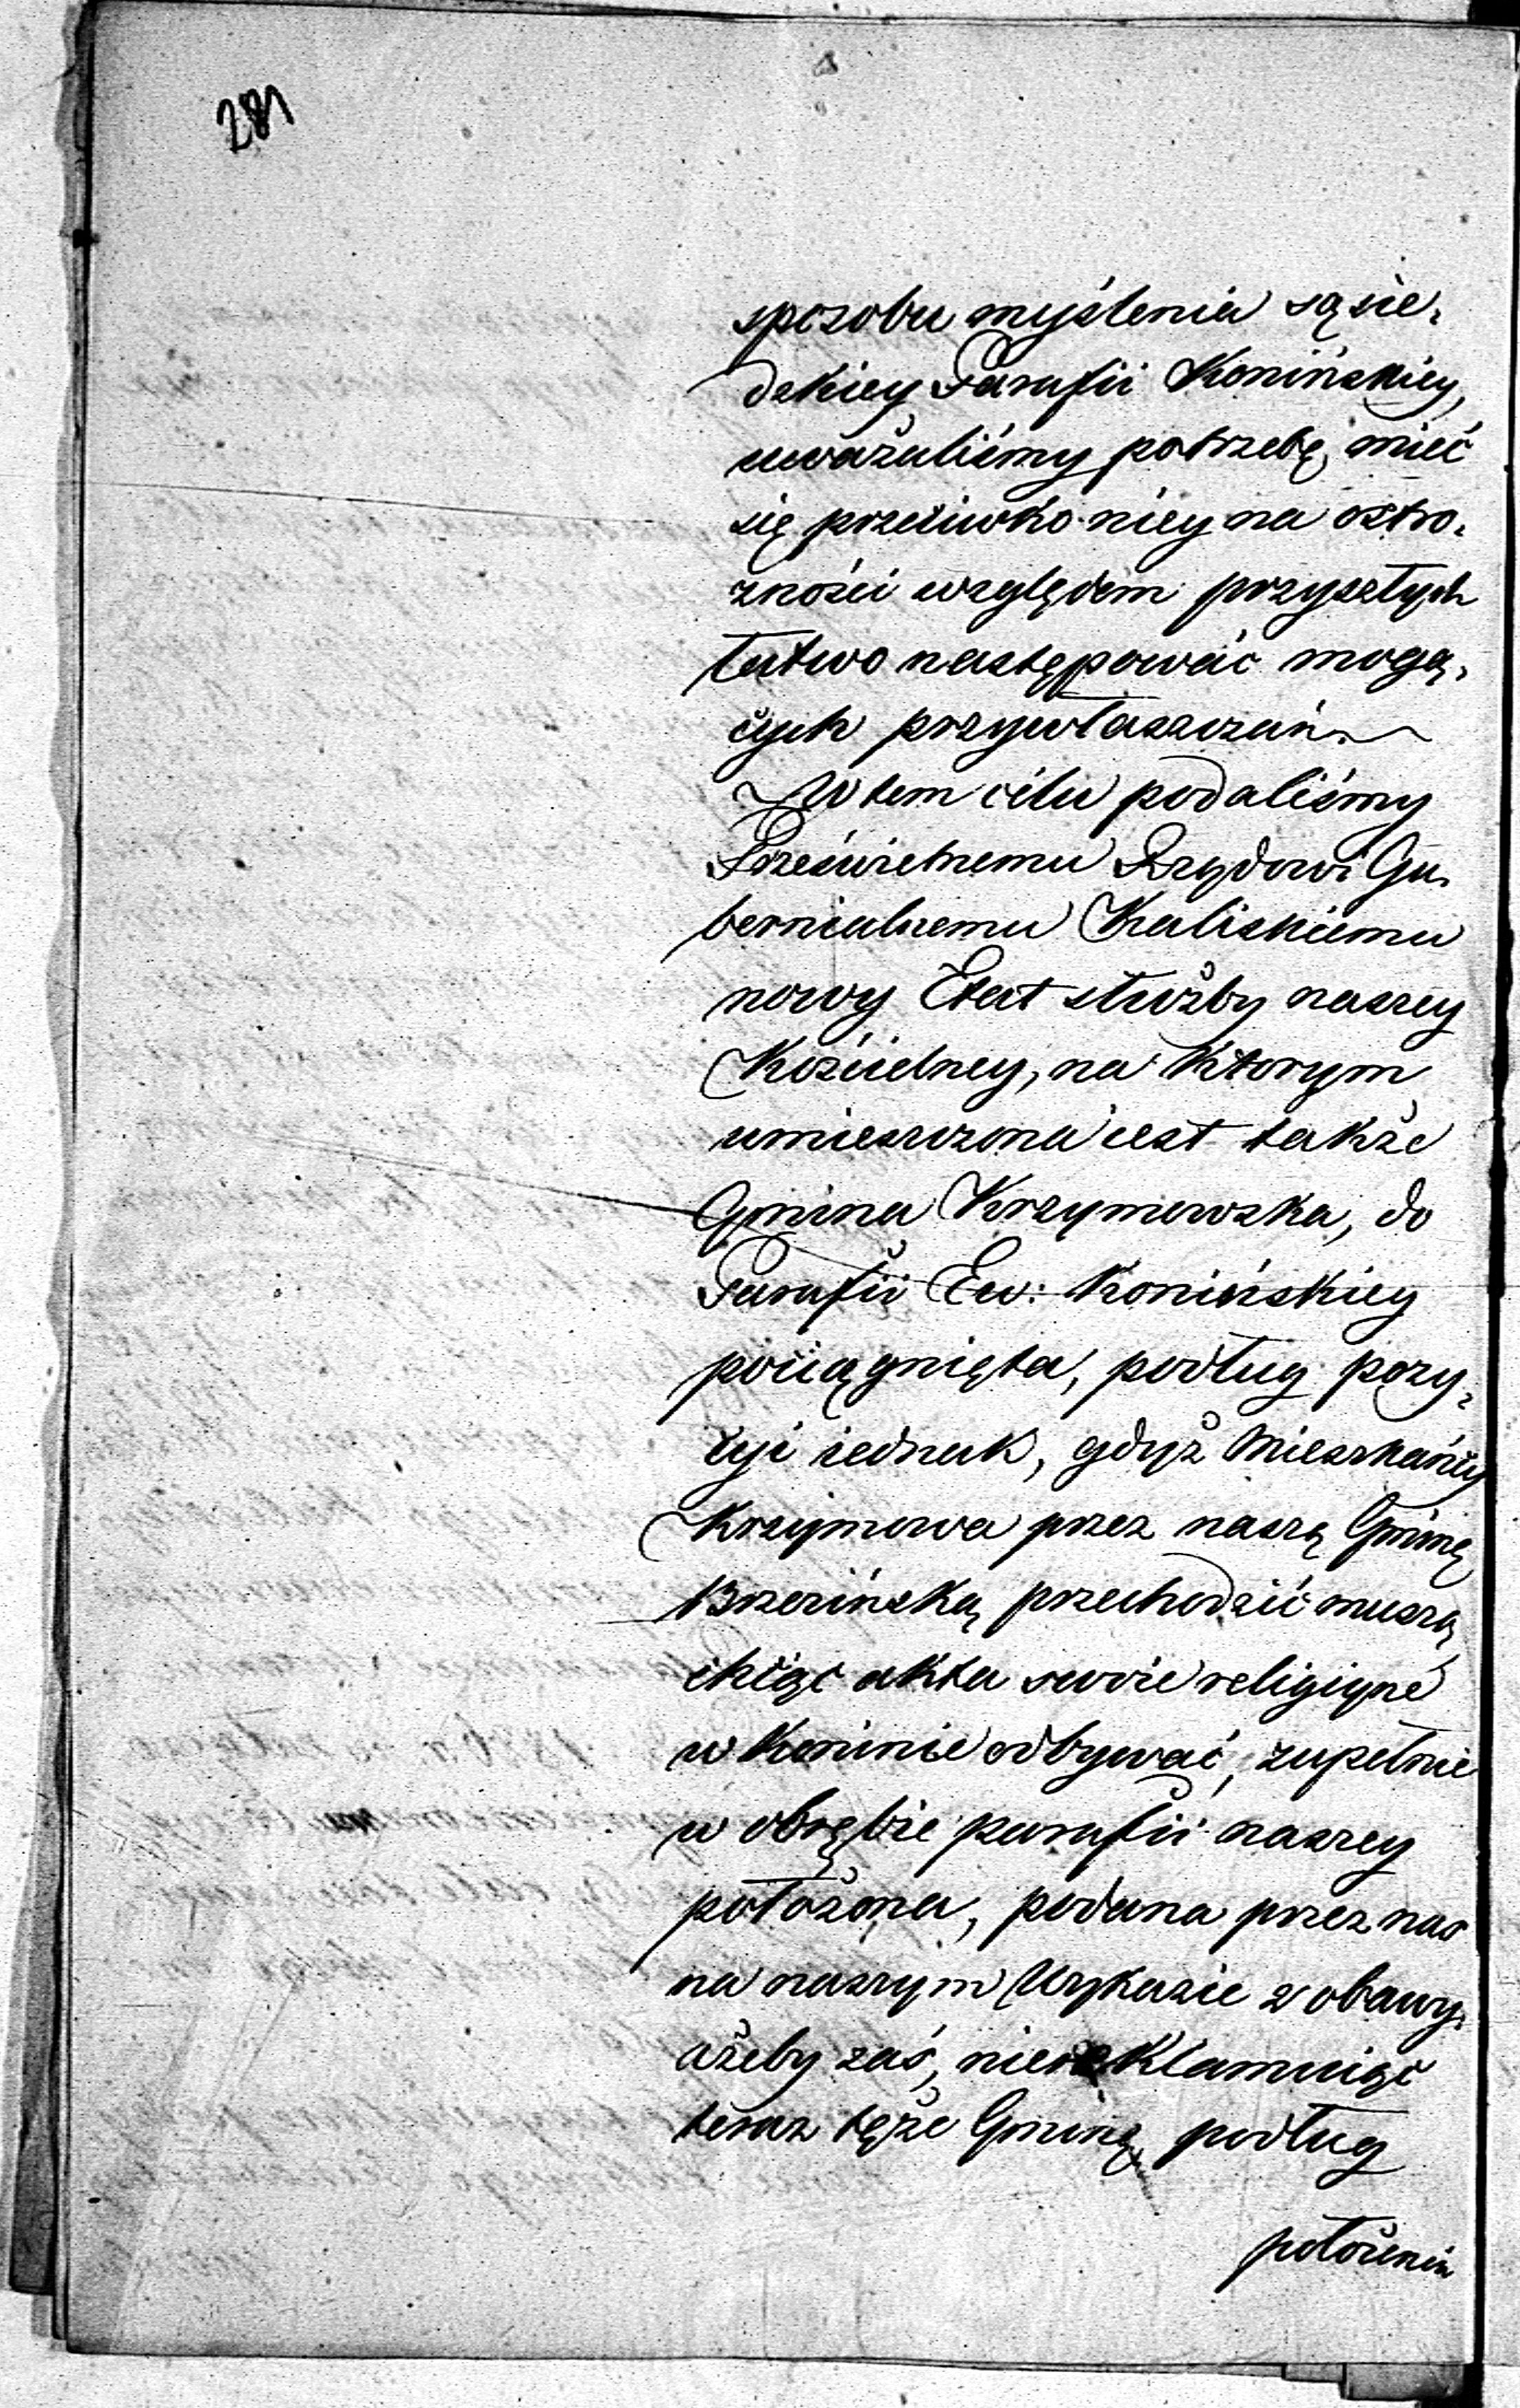 281
sposobu myślenia sąsie-
dzkiey Parafii Konińskiey,
uważaliśmy potrzebę, mieć
się przeciwko niey na ostro-
żności względem przyszłych
łatwo następować mogą-
cych przywłaszczań.
W tem celu podaliśmy
Prześwietnemu Rządowi Gu-
bernialnemu Kaliskiemu
nowy Etat służby naszey
Kościelney, na ktorym
umieszczona iest także
Gmina Krzymowska, do
Parafii Ew: Konińskiey
pociągnięta, podług pozy-
cyi iednak, gdyż Mieszkańcy
Krzymowa przez naszą Gminę
Brzezińską przechodzić muszą
chcąc akta swoie religiyne
w Koninie odbywać, zupełnie
w obrębie parafii naszey
położona, podana przez nas
na naszym Wykazie z obawy,
ażeby zaś, nie reklamuiąc
teraz tęże Gminę podług
położenia